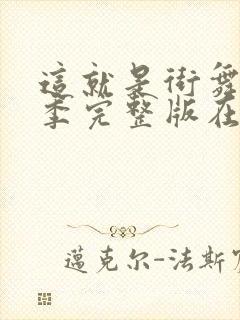 這就是街舞
季完整版在
邁克尔-法斯宾